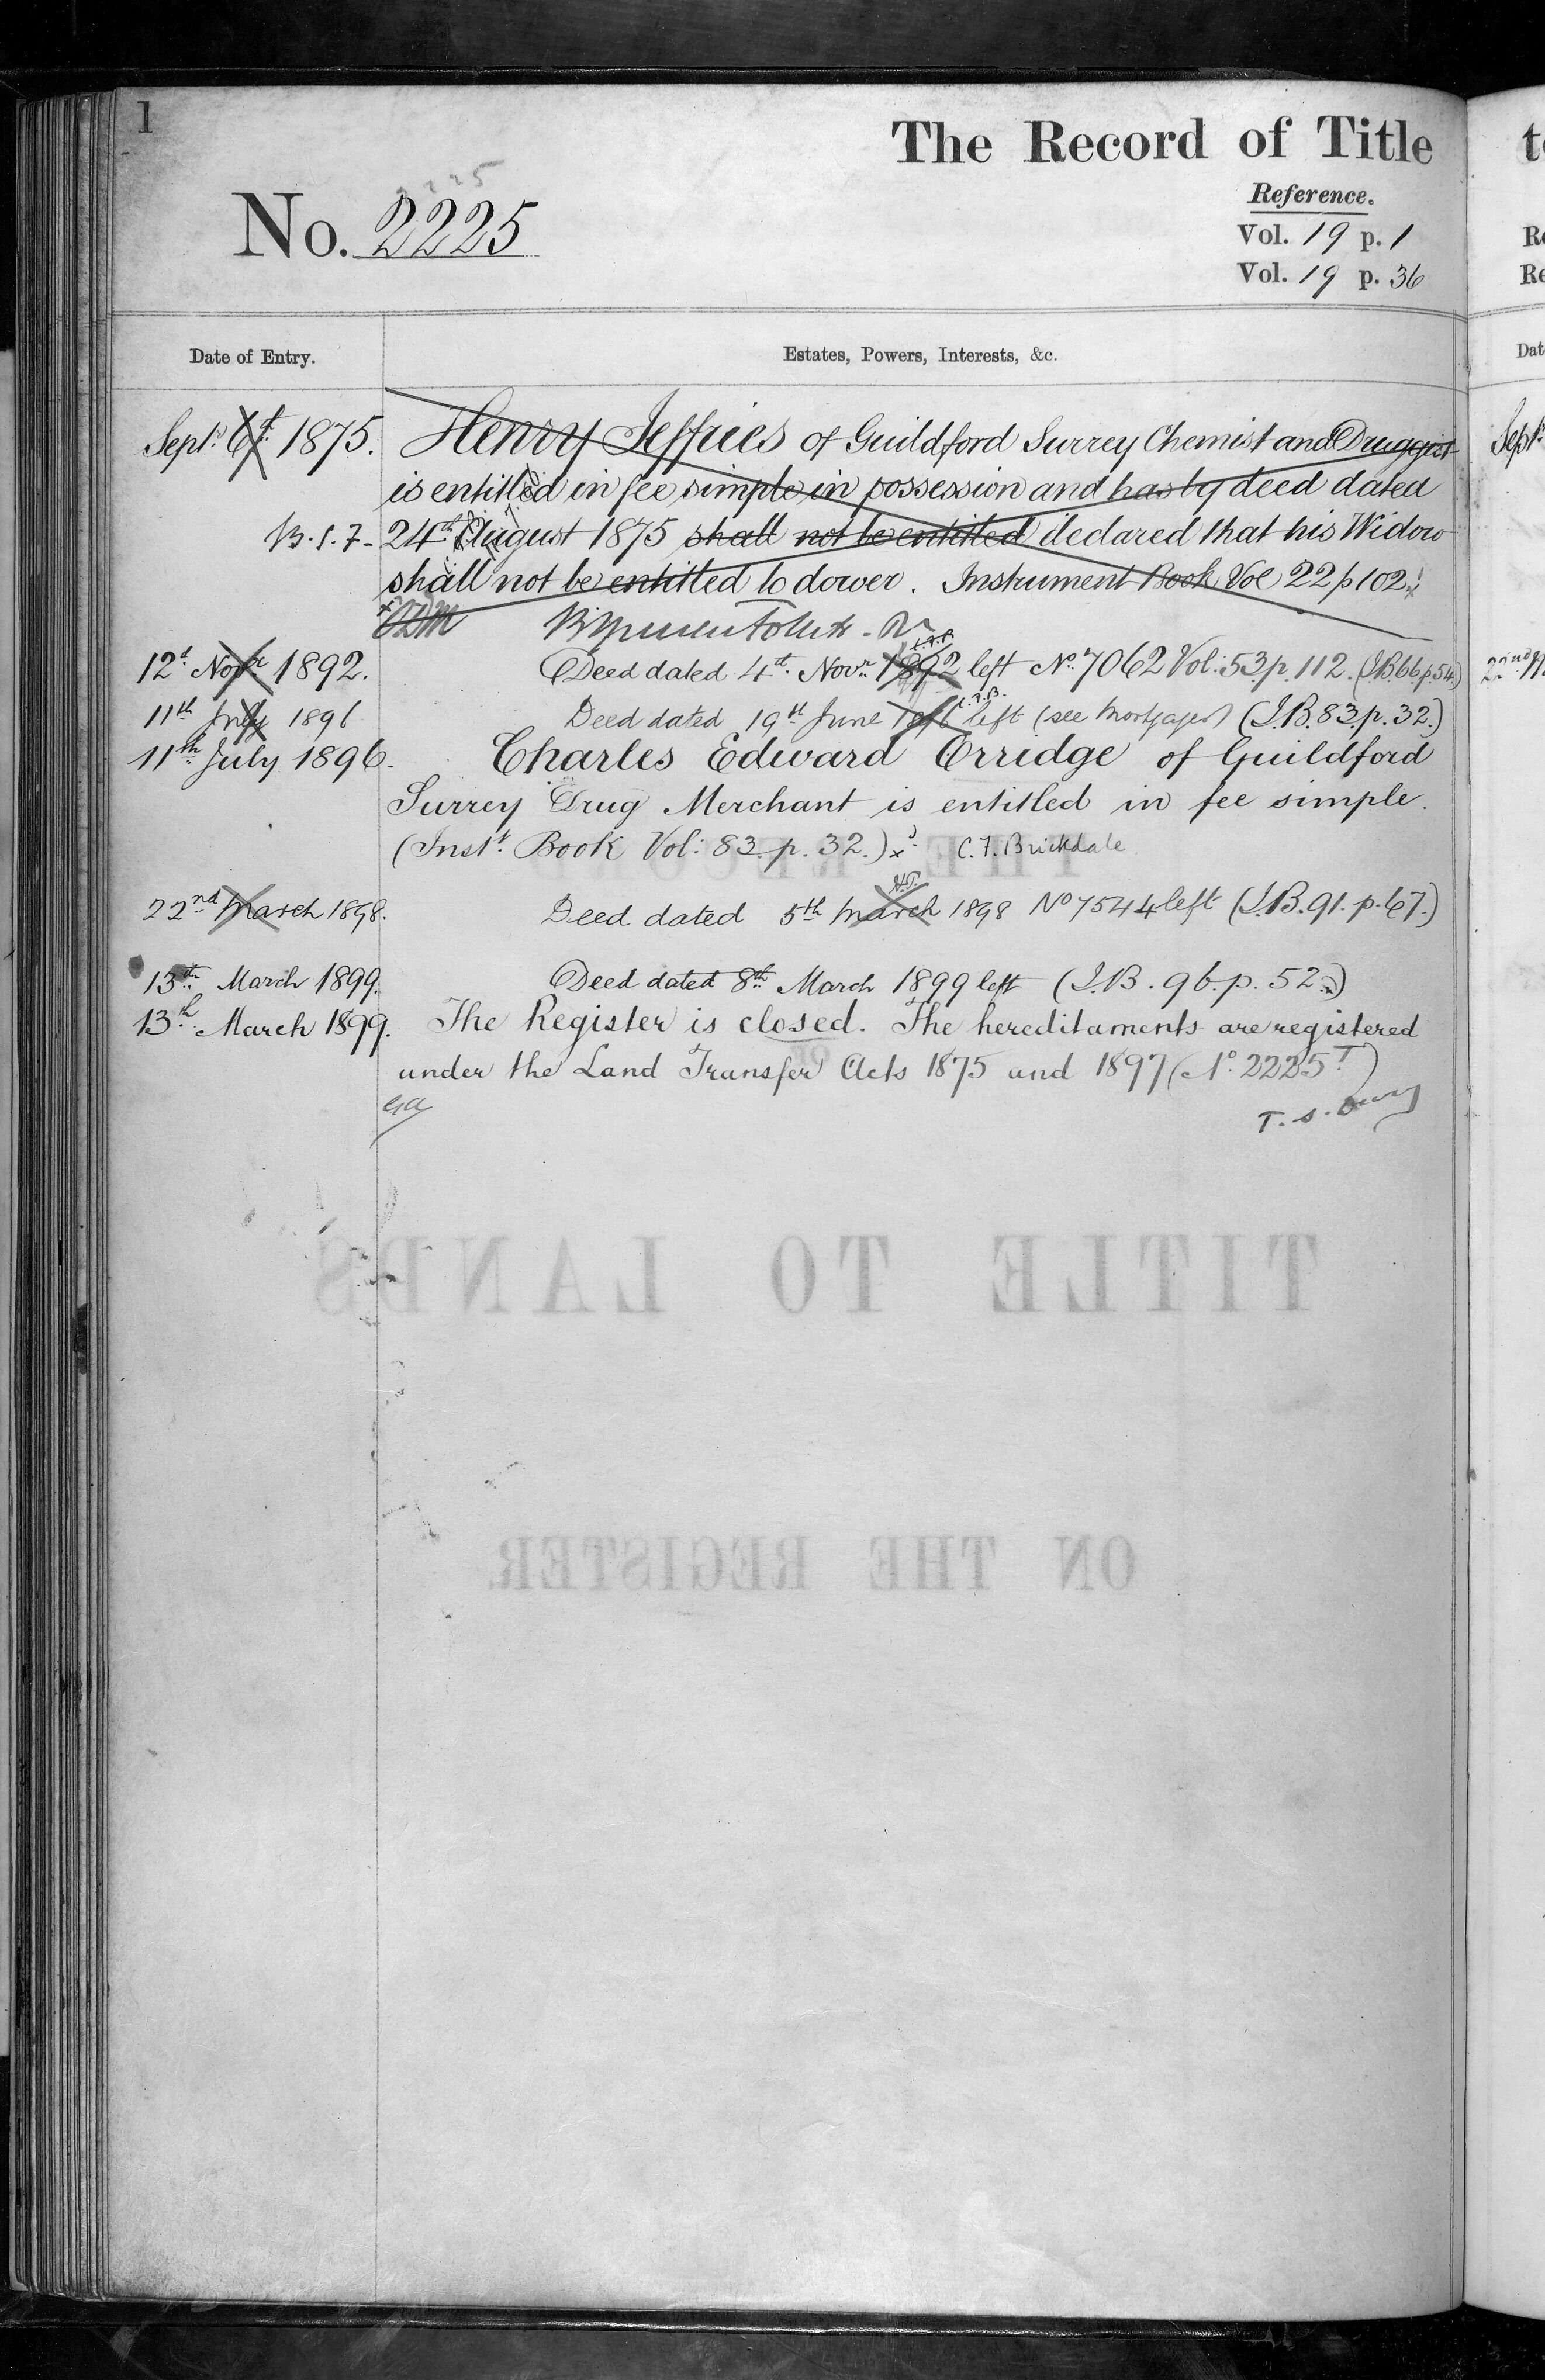 1
The Record of Title
Reference.
No. 2225
Vol. 19 p. 1
Vol. 19 p. 36
Date of Entry.
Estates, Powers, Interests, &c.
Sept: 6th 1875. Henry Jeffries of Guildford Surrey Chemist and Druggist
is entitled in fee simple in possession and has by deed dated
24th August 1875 shall not be entitled declared that his Widow
shall not be entitled to dower. Instrument Book Vol 22 p 102
12th Novr 1892. Deed dated 4th Novr 1892 left No. 7062 Vol: 53. p. 112. (I.B. 66. p. 54.)
11th July 1896 Deed dated 19th June 1896 left (see Mortgages) (I.B. 83. p. 32.)
11th July 1896. Charles Edward Orridge of Guildford
Surrey Drug Merchant is entitled in fee simple.
(Inst: Book Vol: 83. p. 32.) C. F. Brickdale
22nd March 1898. Deed dated 5th March 1898 No 7544 left (I.B. 91. p. 67.)
13th March 1899. Deed dated 8th March 1899 left (I.B. 96. p. 52.)
13th March 1899. The Register is closed. The hereditaments are registered
under the Land Transfer Acts 1875 and 1897 (No. 2225 T)
TITLE TO LANDS
ON THE REGISTER.